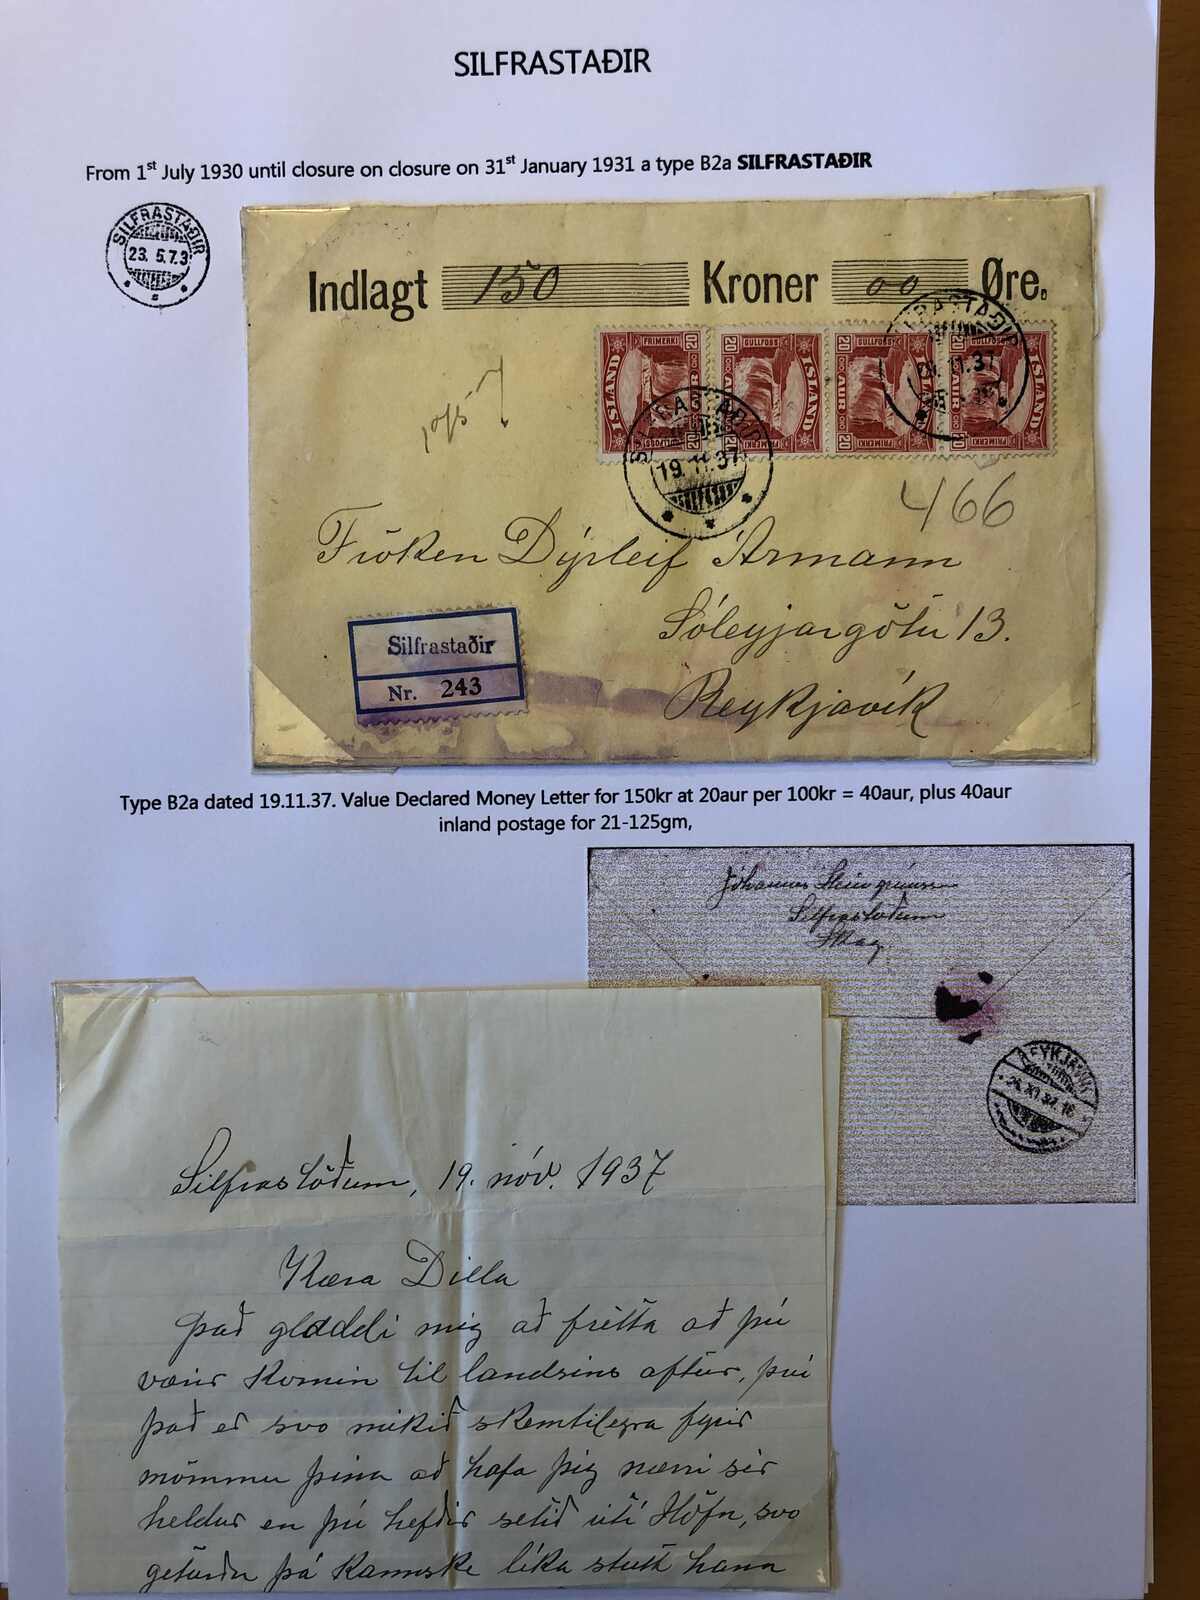 SILFRASTAÐIR
From 1st July 1930 until closure on closure on 31st January 1931 a type B2a SILFRASTAÐIR
SILFRASTAÐIR
23. 5.7.3
Indlagt 150 Kroner 00 Øre.
20 PRIMERKI ÍSLAND AUR GULLFOSS 20
20 GULLFOSS ÍSLAND AUR PRIMERKI 20
20 GULLFOSS ÍSLAND AUR PRIMERKI 20
ÍSLAND AUR PRIMERKI 20
SILFRASTAÐIR
19.11.37
11.37
466
Fröken Dýrleif Ármann
Sóleyjargötu 13.
Reykjavík
Silfrastaðir
Nr. 243
Type B2a dated 19.11.37. Value Declared Money Letter for 150kr at 20aur per 100kr = 40aur, plus 40aur
inland postage for 21-125gm,
Jóhannes Steingrímsson
Silfrastöðum
Skag
REYKJAVÍK
XI.37.16
Silfrastöðum, 19. nóv. 1937
Kæra Dilla
Það gladdi mig að frétta að þú
værir komin til landsins aftur, því
það er svo mikið skemtilegra fyrir
mömmu þína að hafa þig nærri sér
heldur en þú hefðir setið úti í Höfn, svo
geturðu þá kannske líka stutt hana